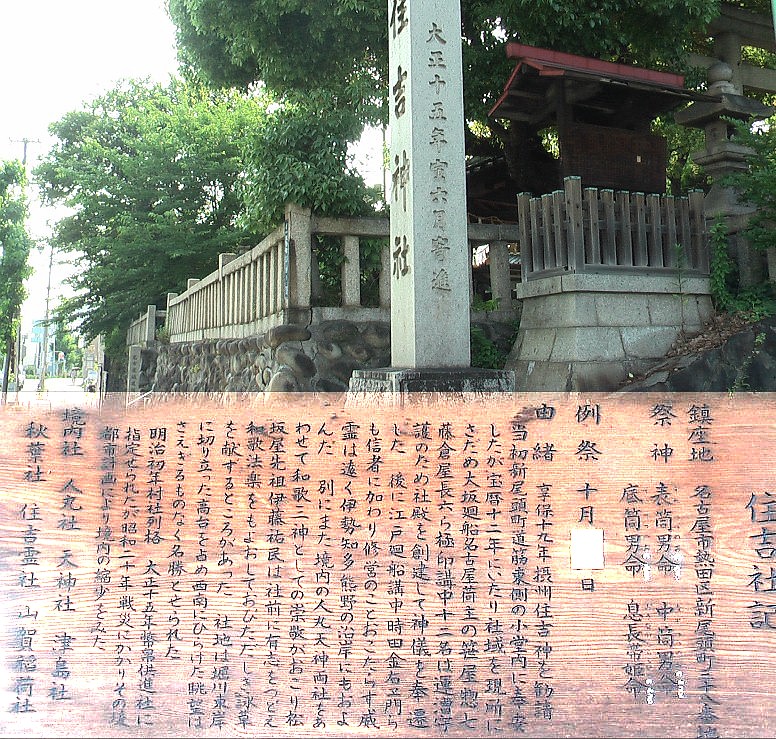 住吉神社
大正十五年寅六月寄進
住吉社記
鎮座地 名古屋市熱田区新尾頭町二十八番地
祭神 表筒男命 中筒男命
底筒男命 息長帯姫命
例祭 十月 日
由緒 享保十九年摂州住吉神を勧請
当初新尾頭町道筋東側の小堂内に奉安
したが宝暦十二年にいたり社域を現所に
さため大坂廻船名古屋荷主の笹屋惣七
藤倉屋長六ら極印講中十二名は運漕守
護のため社殿を創建して神儀を奉遷
した 後に江戸廻船講中時田金右エ門ら
も信者に加わり修営のことおこたらす威
霊は遠く伊勢知多熊野の沿岸にもおよ
んだ 別にまた境内の人丸天神両社をあ
わせて和歌三神としての崇敬がおこり松
坂屋先祖伊藤祐民は社前に有志をつどえ
和歌法楽をもよおしておひただしき詠草
を献ずるところがあった 社地は堀川東岸
に切り立った高台を占め西南にひらけた眺望は
さえぎるものなく名勝とせられた
明治初年村社列格 大正十五年幣帛供進社に
指定せられたが昭和二十年戦災にかかりその後
都市計画により境内の縮少をみた
境内社 人丸社 天神社 津島社
秋葉社 住吉霊社 山賀稲荷社